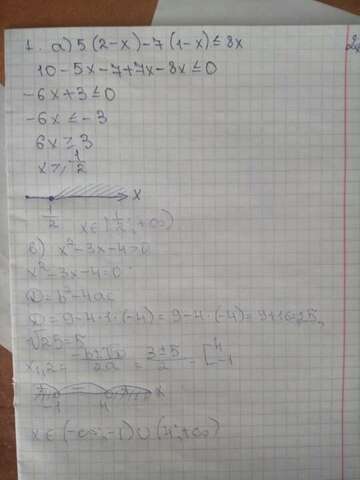 1. а) 5(2-x)-7(1-x)≤8x
10-5x-7+7x-8x≤0
-6x+3≤0
-6x≤-3
6x≥3
x≥1/2
x
1/2
x∈[1/2;+∞)
в) x²-3x-4>0
x²-3x-4=0
D=b²-4ac
D=9-4·1·(-4)=9-4·(-4)=9+16=25,
√25=5
x₁,₂= -b±√D/2a = 3±5/2 = [4 -1
-1 4 x
x∈(-∞;-1)∪(4;+∞)